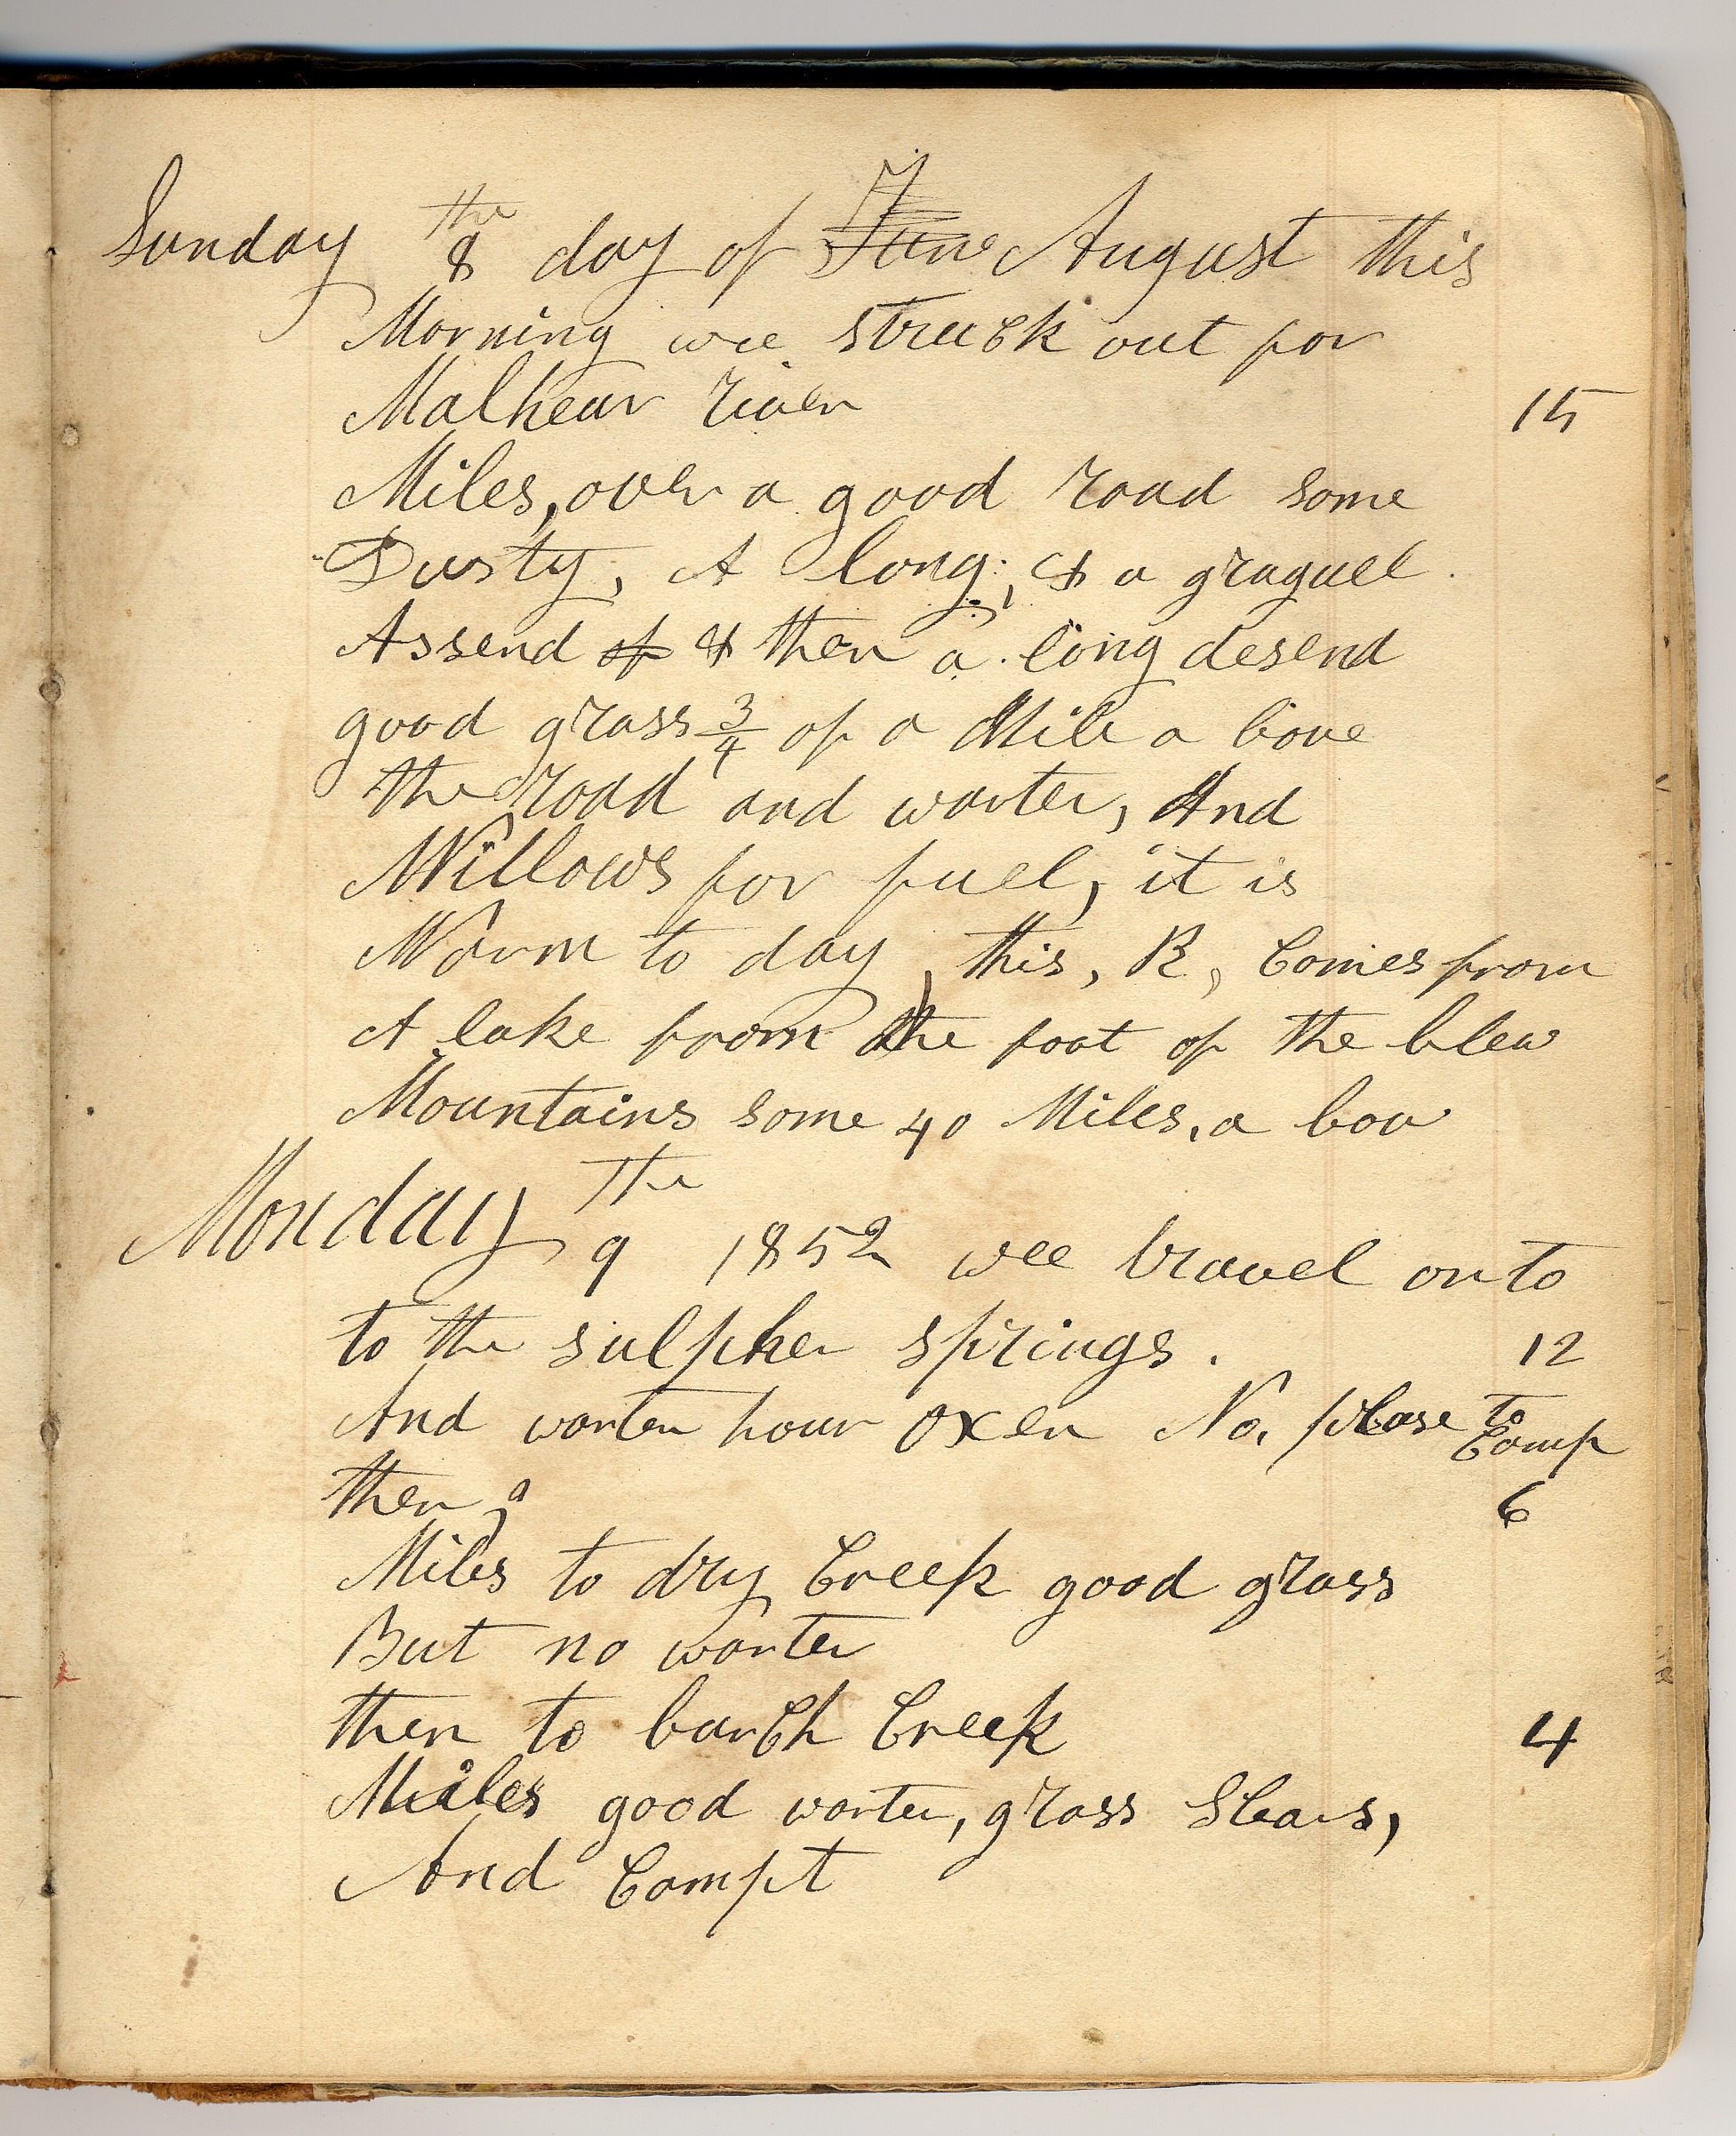 Sunday 8 the day of June August this
Morning wee struck out for
Malhear river 15
Miles, over a good road some
Dusty, A long, & a graguel
Assend of & then a long desend
good grass 3/4 of a Mile a bove
the road and warter, And
Willows for fuel, it is
Warm to day, this, R, Comes from
A lake from the foot of the blew
Mountains some 40 Miles, a bov
Monday The 9 1852 wee travel on to
to the sulpher springs. 12
And warter pour oxen No, plase to Camp
then, a 6
Miles to dry Creek good grass
But no warter
then to barch Creek 4
Miles good warter, grass
And Campt